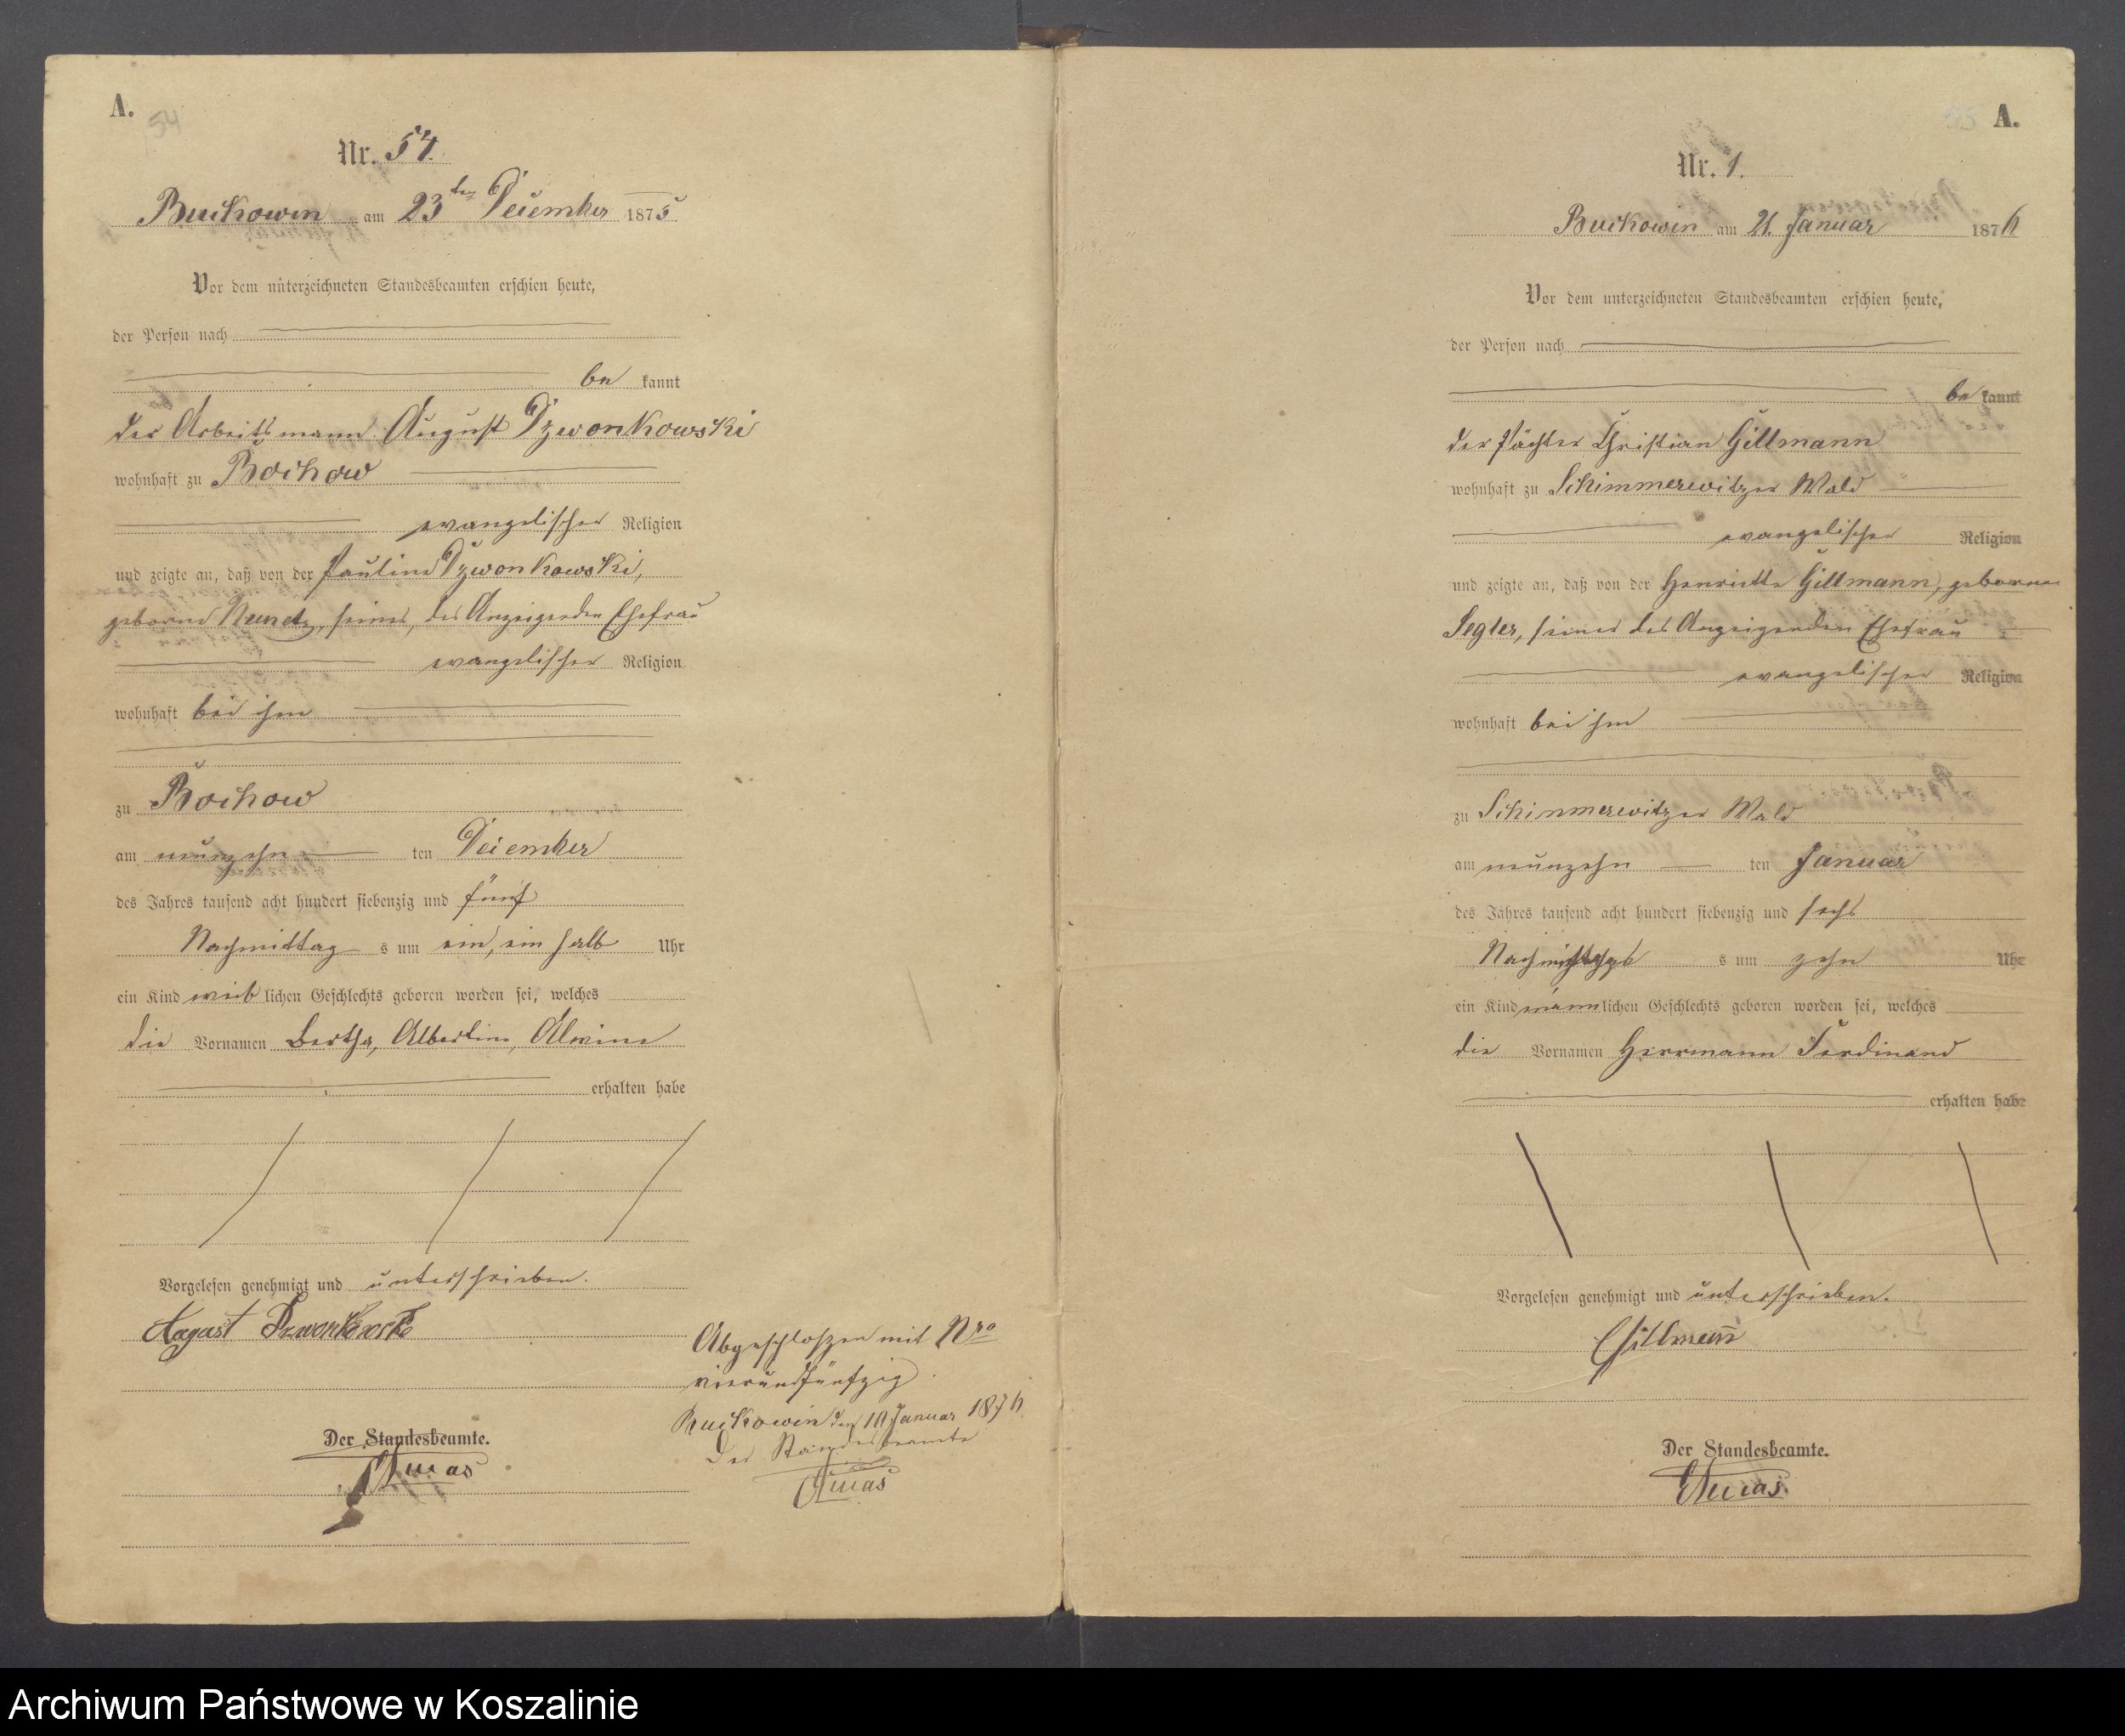 A.
54
Nr. 54.
Buckowin am 23ten December 1875
Vor dem unterzeichneten Standesbeamten erschien heute,
der Person nach
be kannt
der Arbeitsmann August Dzwonkowski
wohnhaft zu Bochow
evangelischer Religion
und zeigte an, daß von der Pauline Dzwonkowski,
geborne seiner, des Anzeigenden Ehefrau
evangelischer Religion
wohnhaft bei ihm
zu Bochow
am neunzehn ten December
des Jahres tausend acht hundert siebenzig und fünf
Nachmittag s um ein, ein halb Uhr
ein Kind weib lichen Geschlechts geboren worden sei, welches
die Vornamen Bertha, Albertine, Alwine
erhalten habe
Vorgelesen genehmigt und unterschrieben.
August
Der Standesbeamte.
Abgeschloßen mit Nro
vierundfünfzig
Buckowin den 10 Januar 1876
Der Standesbeamte
55 A.
Nr. 1.
Buckowin am 21. Januar 1876
Vor dem unterzeichneten Standesbeamten erschien heute,
der Person nach
be kannt
der Pächter Christian Gillmann
wohnhaft zu Schimmerewitzer Wald
evangelischer Religion
und zeigte an, daß von der Henriette Gillmann, geborne
Segler, seiner des Anzeigenden Ehefrau
evangelischer Religion
wohnhaft bei ihm
zu Schimmerewitzer Wald
am neunzehn ten Januar
des Jahres tausend acht hundert siebenzig und sechs
s um zehn Uhr
ein Kind männ lichen Geschlechts geboren worden sei, welches
die Vornamen Herrmann Ferdinand
erhalten habe
Vorgelesen genehmigt und unterschrieben.
Gillmann
Der Standesbeamte.
Archiwum Państwowe w Koszalinie